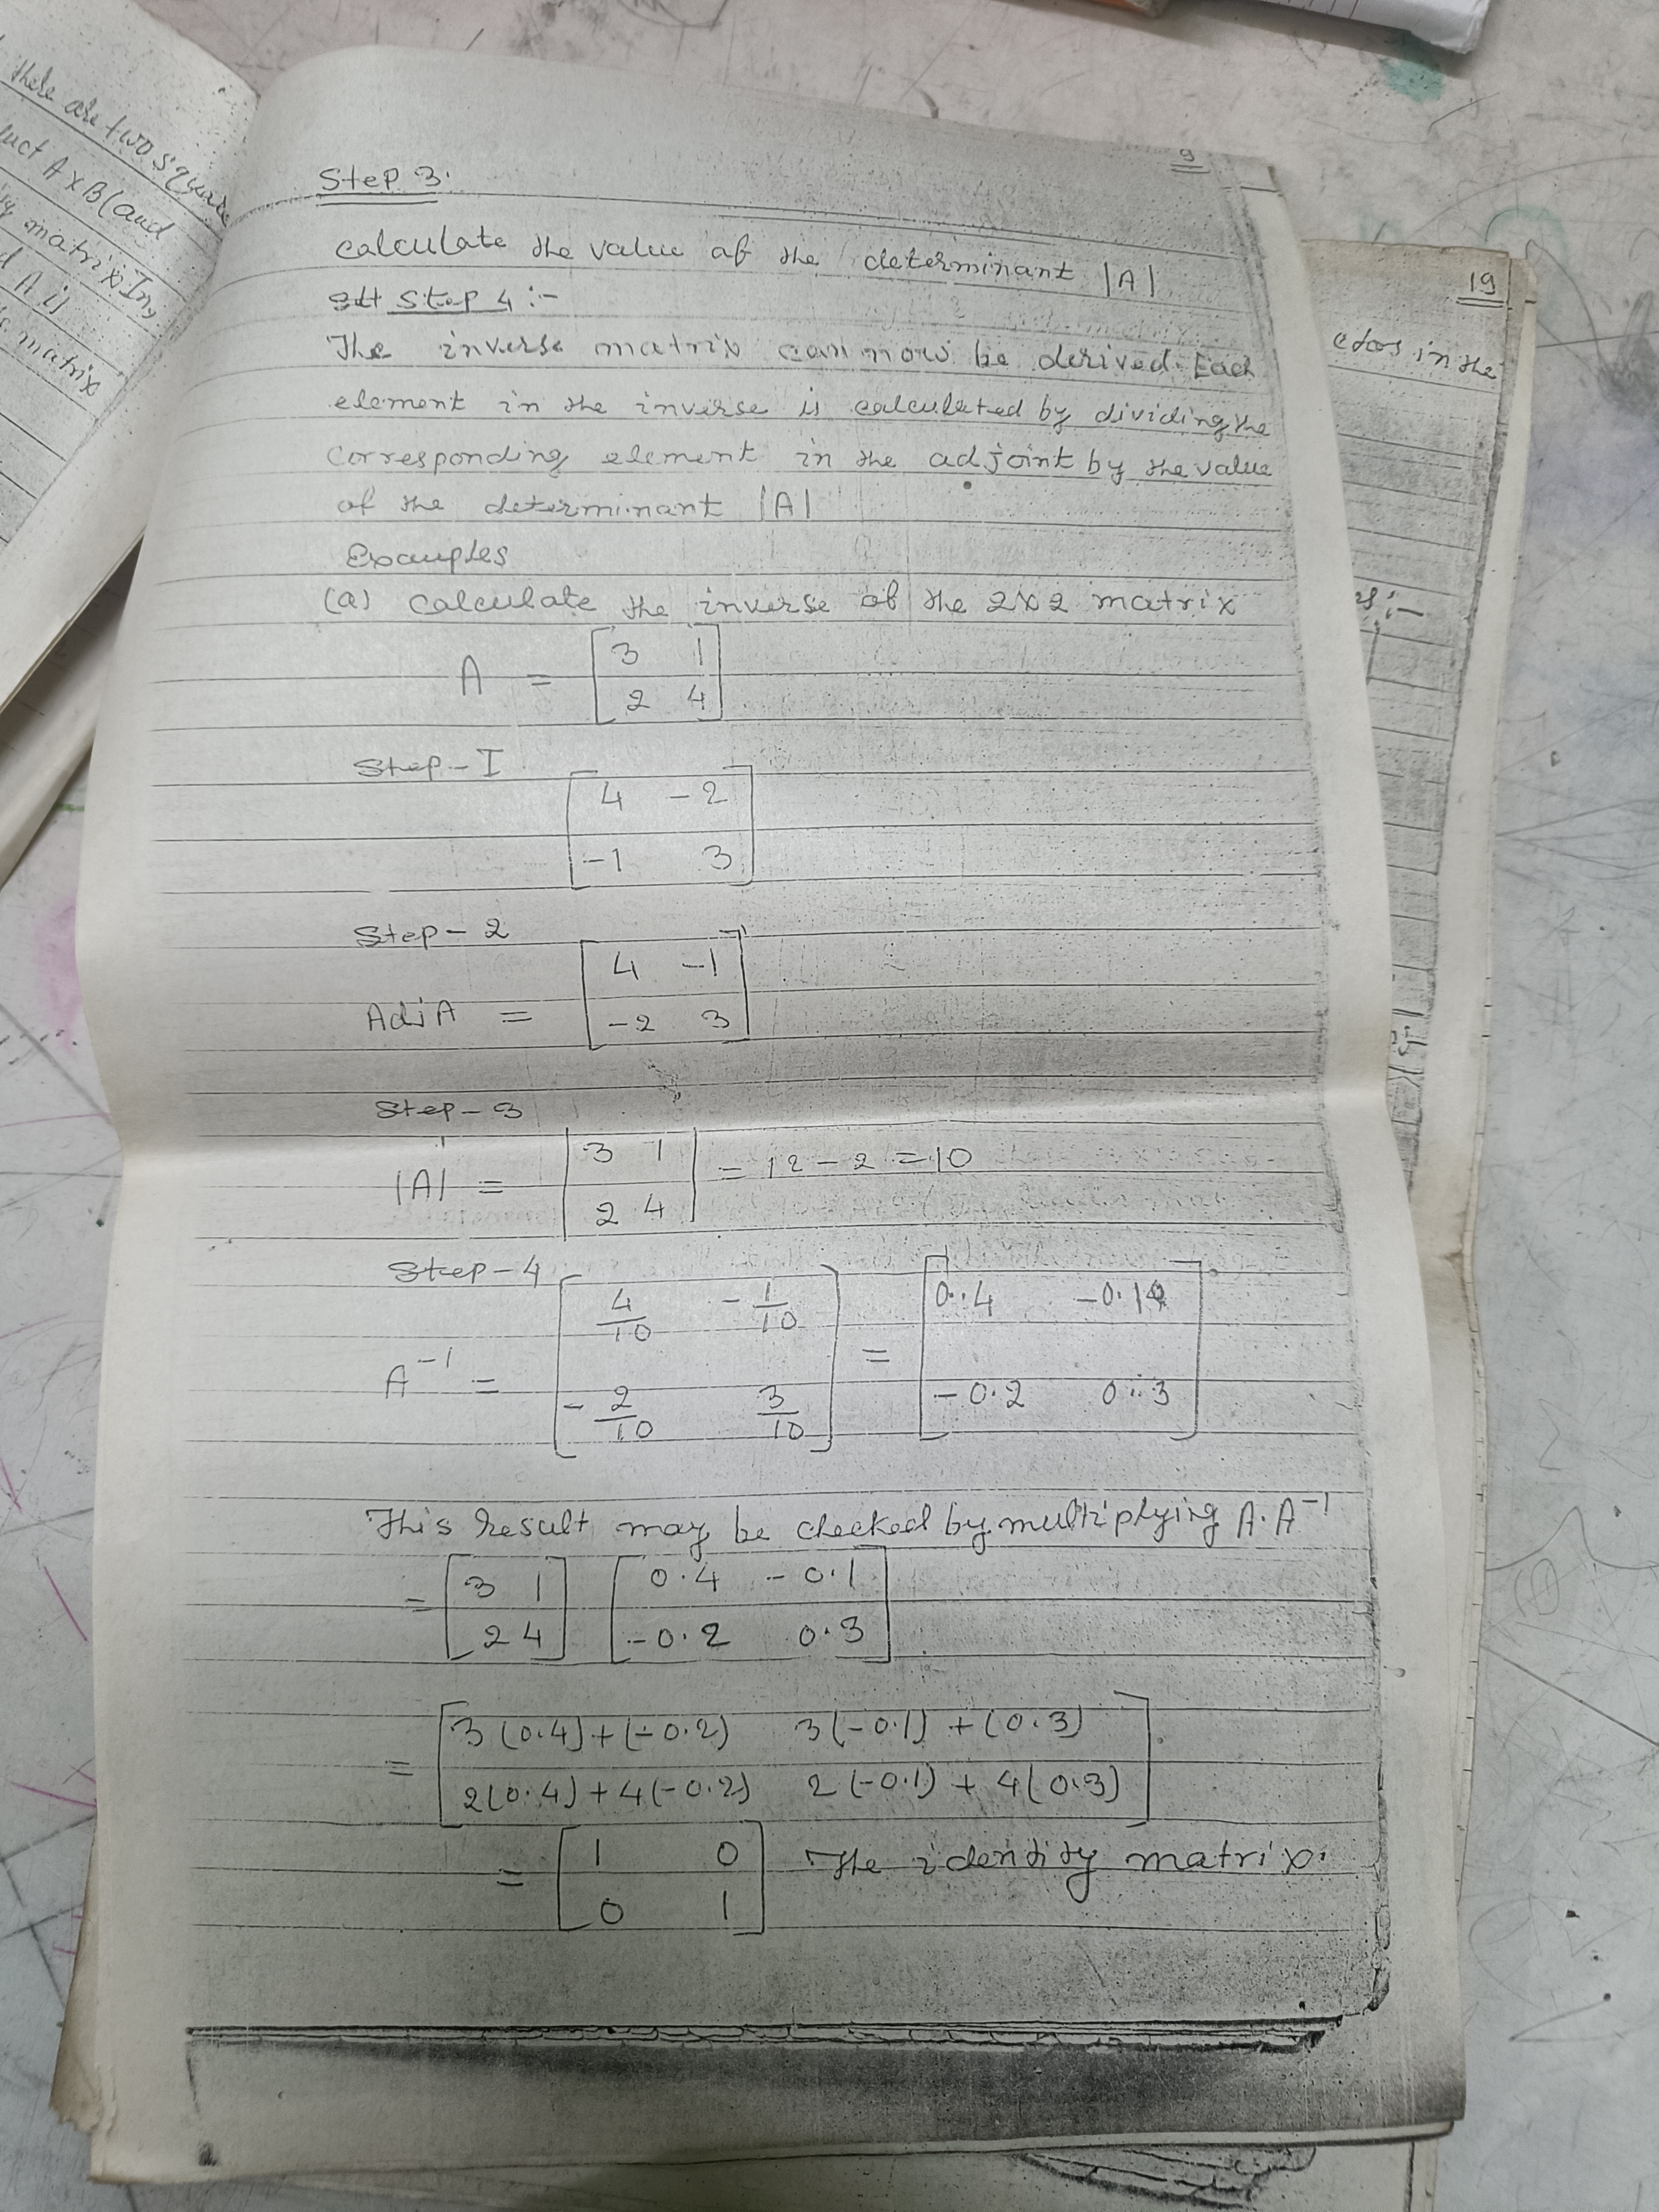 there are two square
uct A x B (and
matrix In,
d A is
matrix
9
Step 3.
calculate the value of the determinant |A|
Step 4 :-
The inverse matrix can now be derived. Each
element in the inverse is calculated by dividing the
corresponding element in the adjoint by the value
of the determinant |A|
Examples
(a) calculate the inverse of the 2x2 matrix
A = [3 1
2 4]
Step-I
[4 -2
-1 3]
Step-2
Adj A = [4 -1
-2 3]
Step-3
|A| = |3 1
2 4| = 12 - 2 = 10
Step-4
A⁻¹ = [4/10 -1/10
-2/10 3/10] = [0.4 -0.1
-0.2 0.3]
This result may be checked by multiplying A. A⁻¹
= [3 1
2 4] [0.4 -0.1
-0.2 0.3]
= [3(0.4)+(-0.2) 3(-0.1)+(0.3)
2(0.4)+4(-0.2) 2(-0.1)+4(0.3)]
= [1 0
0 1] The identity matrix.
19
in the
:-